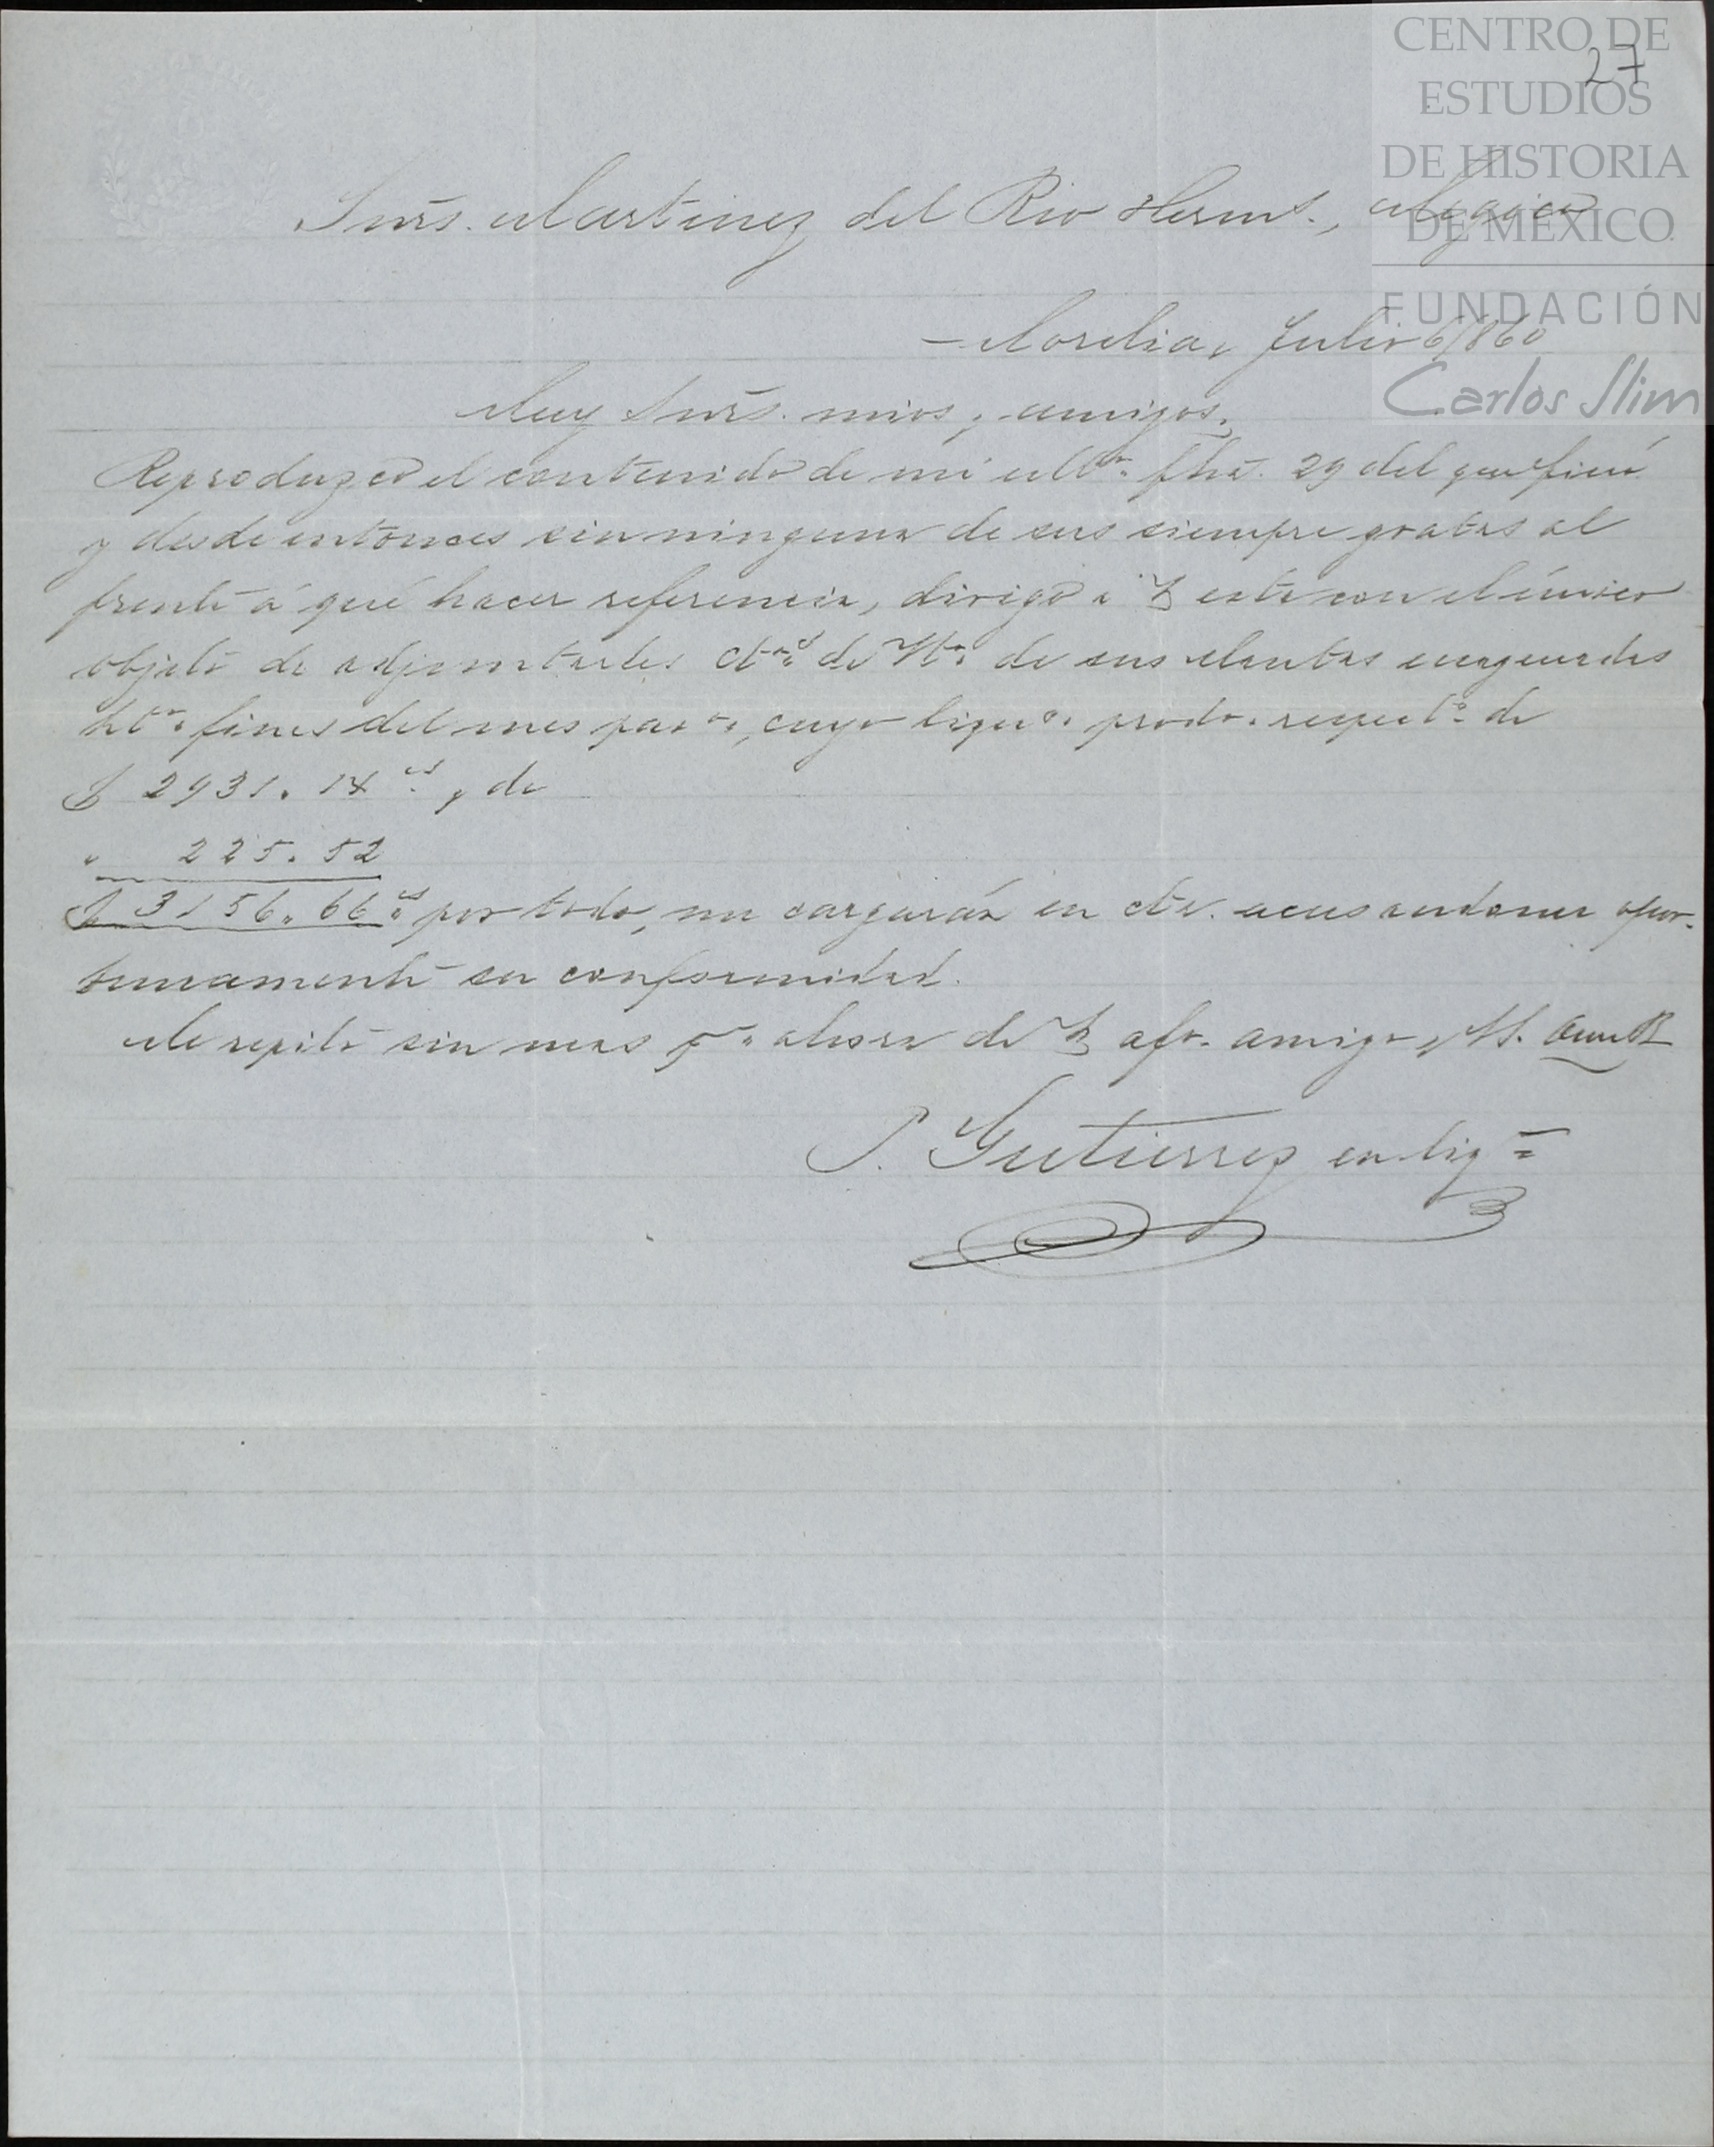 27
CENTRO DE
ESTUDIOS
DE HISTORIA
DE MÉXICO
FUNDACIÓN
Carlos Slim
Sres. Martinez del Rio Herms., Mejico
Morelia, Julio 6/860
Muy Sres. mios y amigos,
Reproduzco el contenido de mi ulta. fha. 29 del que finó
y desde entonces sin ninguna de sus siempre gratas al
frente á qué hacer referencia, dirijo a V esta con el único
objeto de adjuntarles ctas. de Vta. de sus Mantas enagenadas
hta. fines del mes pasdo., cuyo liqudo. prodto. respecto. de
$ 2931. 14 cs. y de
" 225. 52
$ 3156. 66 cs. por todo, me cargarán en cta. acusandome opor-
tunamente su conformidad.
Me repito sin mas pr. ahora de V afo. amigo y S.
P. Gutierrez en liqn.